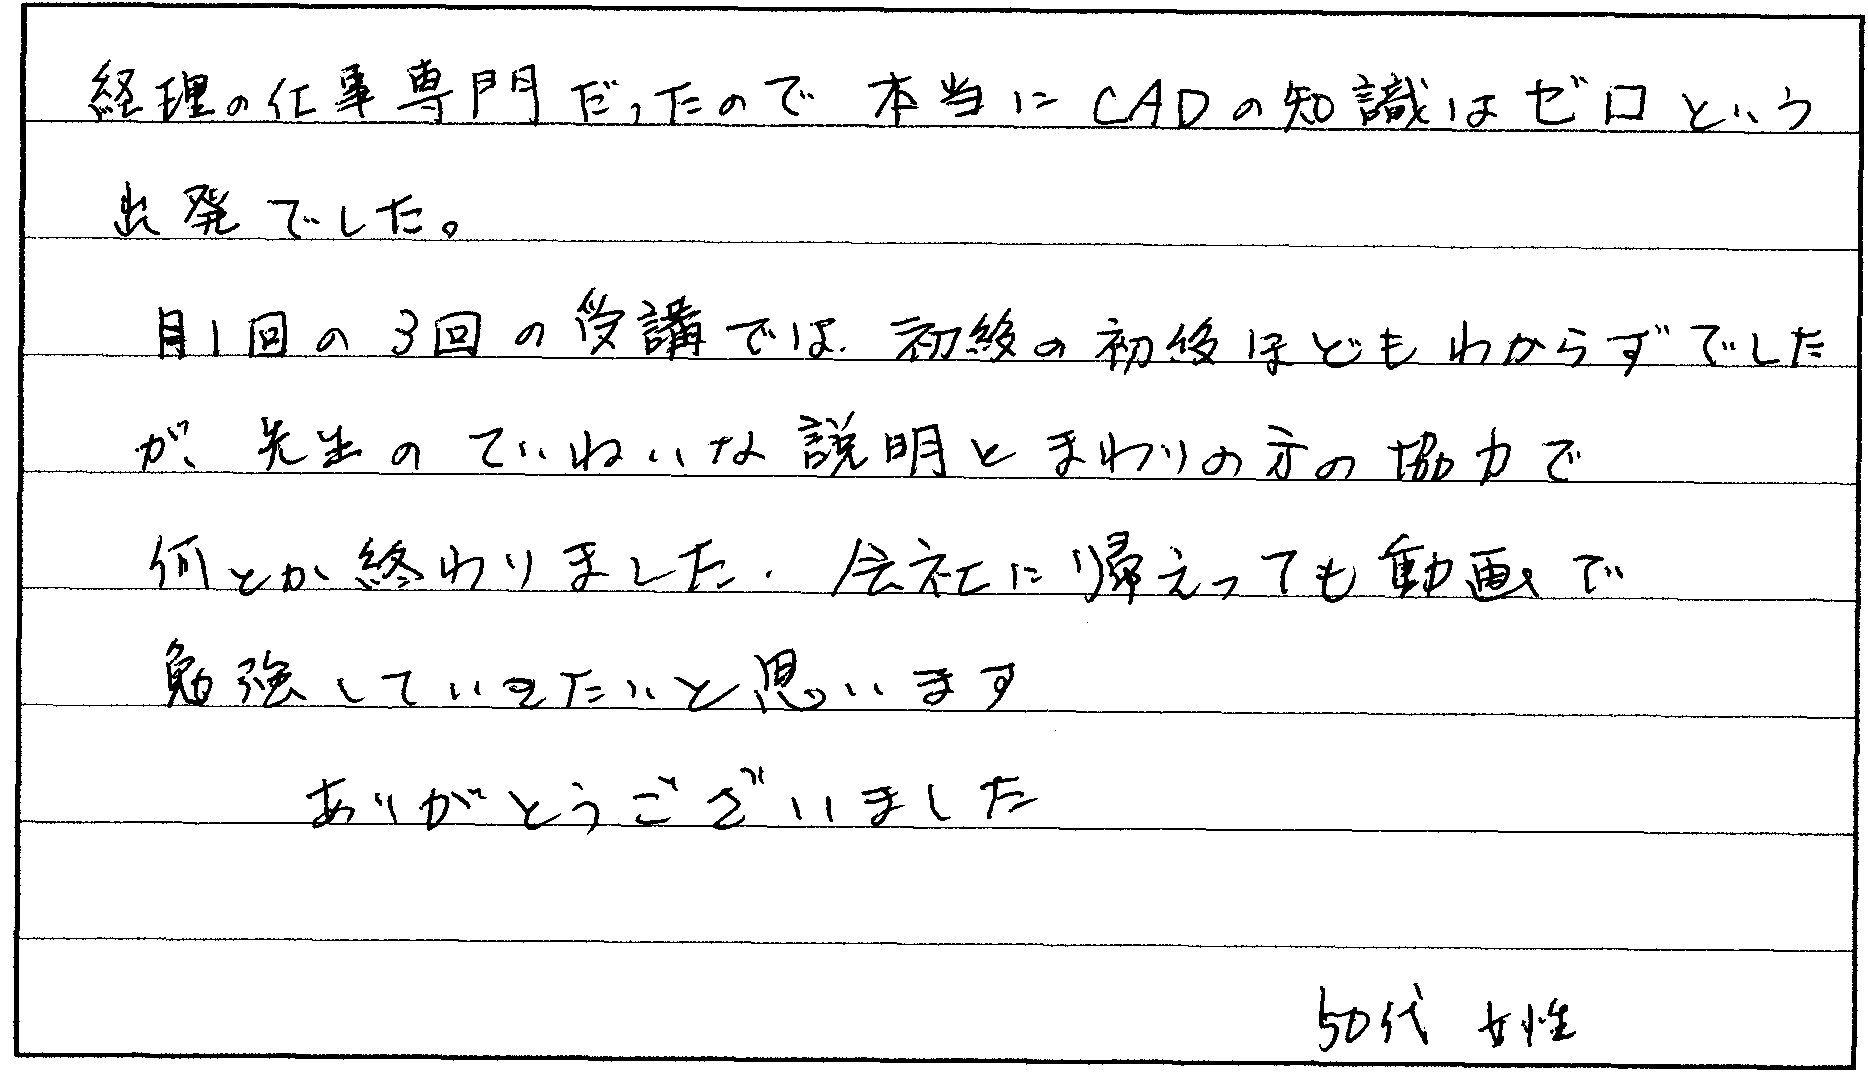 経理の仕事専門だったので 本当にCADの知識はゼロという
出発でした。
月1回の3回の受講では、初級の初級ほどもわからずでした
が、先生のていねいな説明とまわりの方の協力で
何とか終わりました. 会社に帰えっても動画で
勉強していきたいと思います
ありがとうございました
50代 女性